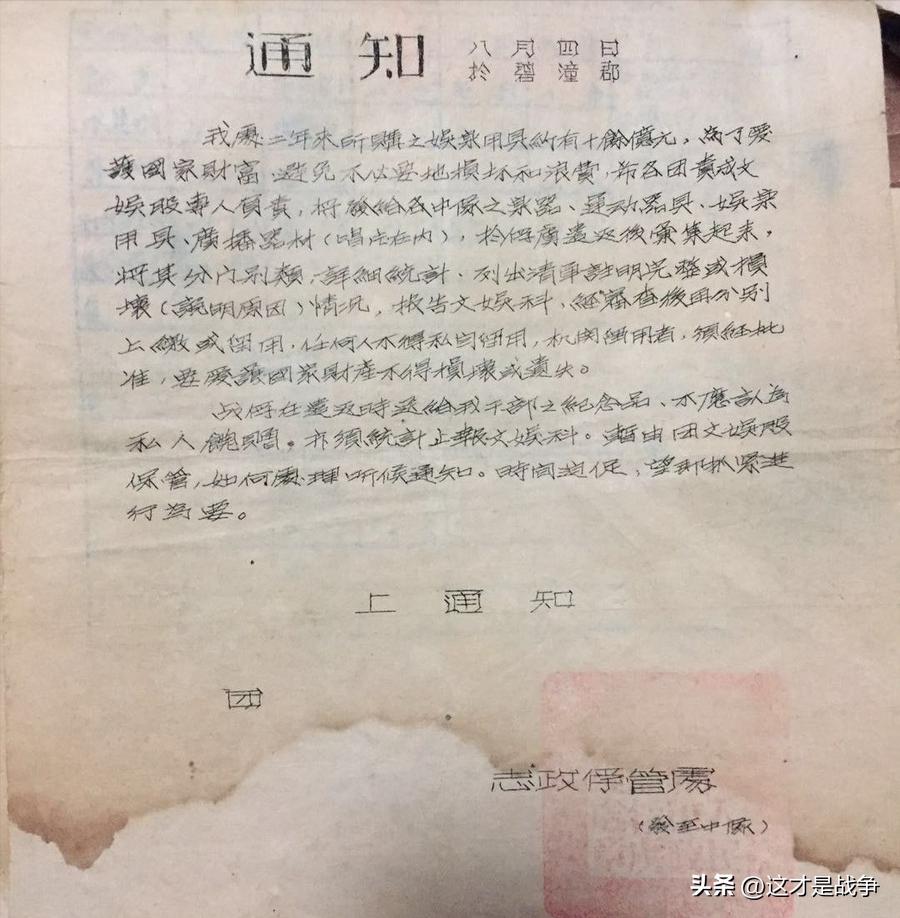 通知 八月四日
於碧潼郡
我處二年來所購之娱樂用具約有十餘億元，為了爱
護國家財富避免不必要地損坏和浪費，希各团責成文
娱股專人負責，将發給各中隊之樂器、運动器具、娱樂
用具、廣播器材（唱片在内），於俘虜遣返後彙集起来，
将其分门别類，詳細統計、列出清單註明完整或損
壞（說明原因）情况，报告文娱科，經審查後再分别
上繳或留用，任何人不得私自留用，机関留用者，須經批
准，要爱護國家財產不得損壞或遺失。
战俘在遣返時送給我干部之紀念品、不應認為
私人餽贈。亦須統計上報文娱科。暫由团文娱股
保管，如何處理听候通知。時間迫促，望即抓紧進
行為要。
上 通 知
团
志政俘管處
（發至中隊）
头条 @这才是战争